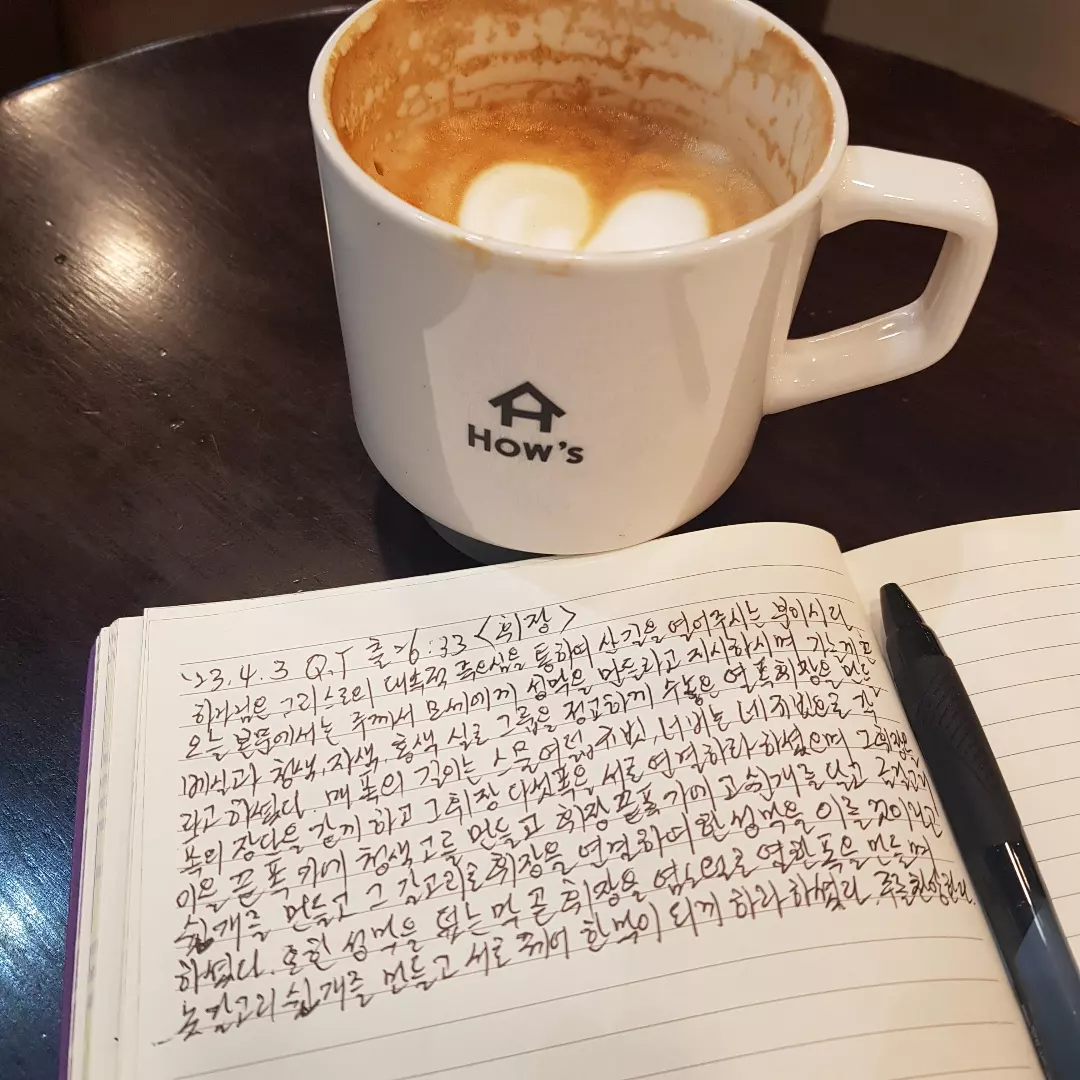 How's
'23.4.3 Q.T 출26:33 <휘장>
하나님은 그리스도의 대속적 죽으심을 통하여 산길을 열어주시는 분이시라.
오늘 본문에서는 주께서 모세에게 성막을 만들라고 지시하시며 가늘게 꼰
베실과 청색, 자색, 홍색 실로 그룹을 정교하게 수놓은 열폭휘장을 만들
라고 하셨다. 매 폭의 길이는 스물여덟 규빗, 너비는 네 규빗으로 각
폭의 장단을 같게 하고 그휘장 다섯폭을 서로 연결하라 하셨으며 그휘장을
이을 끝 폭 가에 청색 고를 만들고 휘장 끝폭 가에 고 쉰개를 달고 금갈고리
쉰개를 만들고 그 갈고리로 휘장을 연결하여 한 성막을 이룰 것이니라
하셨다. 또한 성막을 덮는 막 곧 휘장을 염소털로 열한 폭을 만들며
놋갈고리 쉰개를 만들고 서로 꿰어 한막이 되게 하라 하셨다.